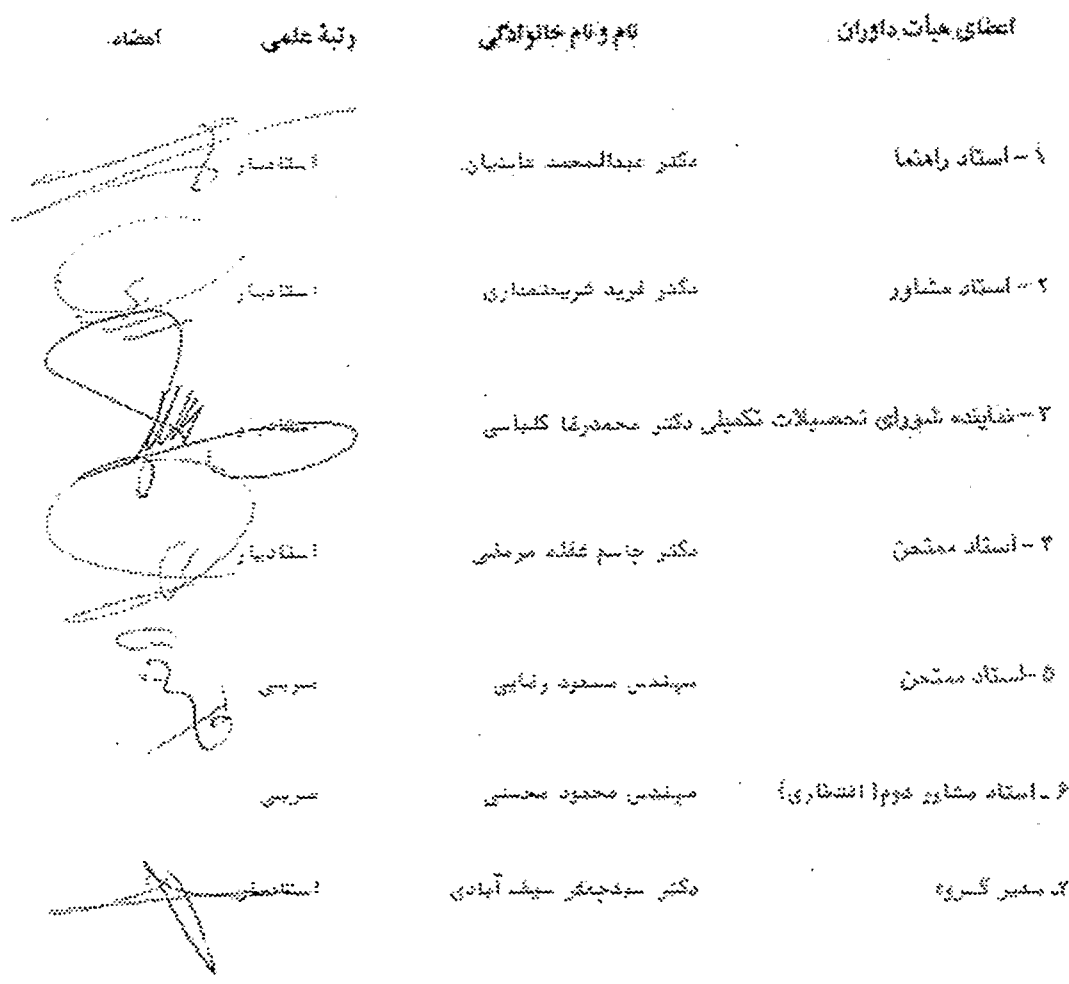 اعضای هیأت داوران نام و نام خانوادگی رتبهٔ علمی امضاء
۱ - استاد راهنما دکتر عبدالمحمد عابدیان استادیار
۲ - استاد مشاور دکتر فرید شریعتمداری استادیار
۳ - نماینده شورای تحصیلات تکمیلی دکتر محمدرضا کلباسی استادیار
۴ - استاد ممتحن دکتر جاسم غفله مرمضی استادیار
۵ - استاد ممتحن مهندس مسعود رضایی مربی
۶ - استاد مشاور دوم( افتخاری) مهندس محمود محسنی مربی
۷ - مدیر گروه دکتر سیدجعفر سیف آبادی استادیار